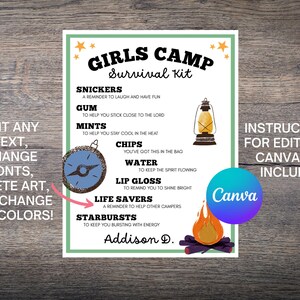 GIRLS CAMP
Survival Kit
SNICKERS
A REMINDER TO LAUGH AND HAVE FUN
GUM
TO HELP YOU STICK CLOSE TO THE LORD
MINTS
TO HELP YOU STAY COOL IN THE HEAT
CHIPS
YOU'VE GOT THIS IN THE BAG
WATER
TO KEEP THE SPIRIT FLOWING
LIP GLOSS
TO REMIND YOU TO SHINE BRIGHT
LIFE SAVERS
A REMINDER TO HELP OTHER CAMPERS
STARBURSTS
TO KEEP YOU BURSTING WITH ENERGY
Addison D.
IT ANY
TEXT,
HANGE
ONTS,
ETE ART,
CHANGE
COLORS!
INSTRUC
FOR EDIT
CANVA
INCLU
Canva